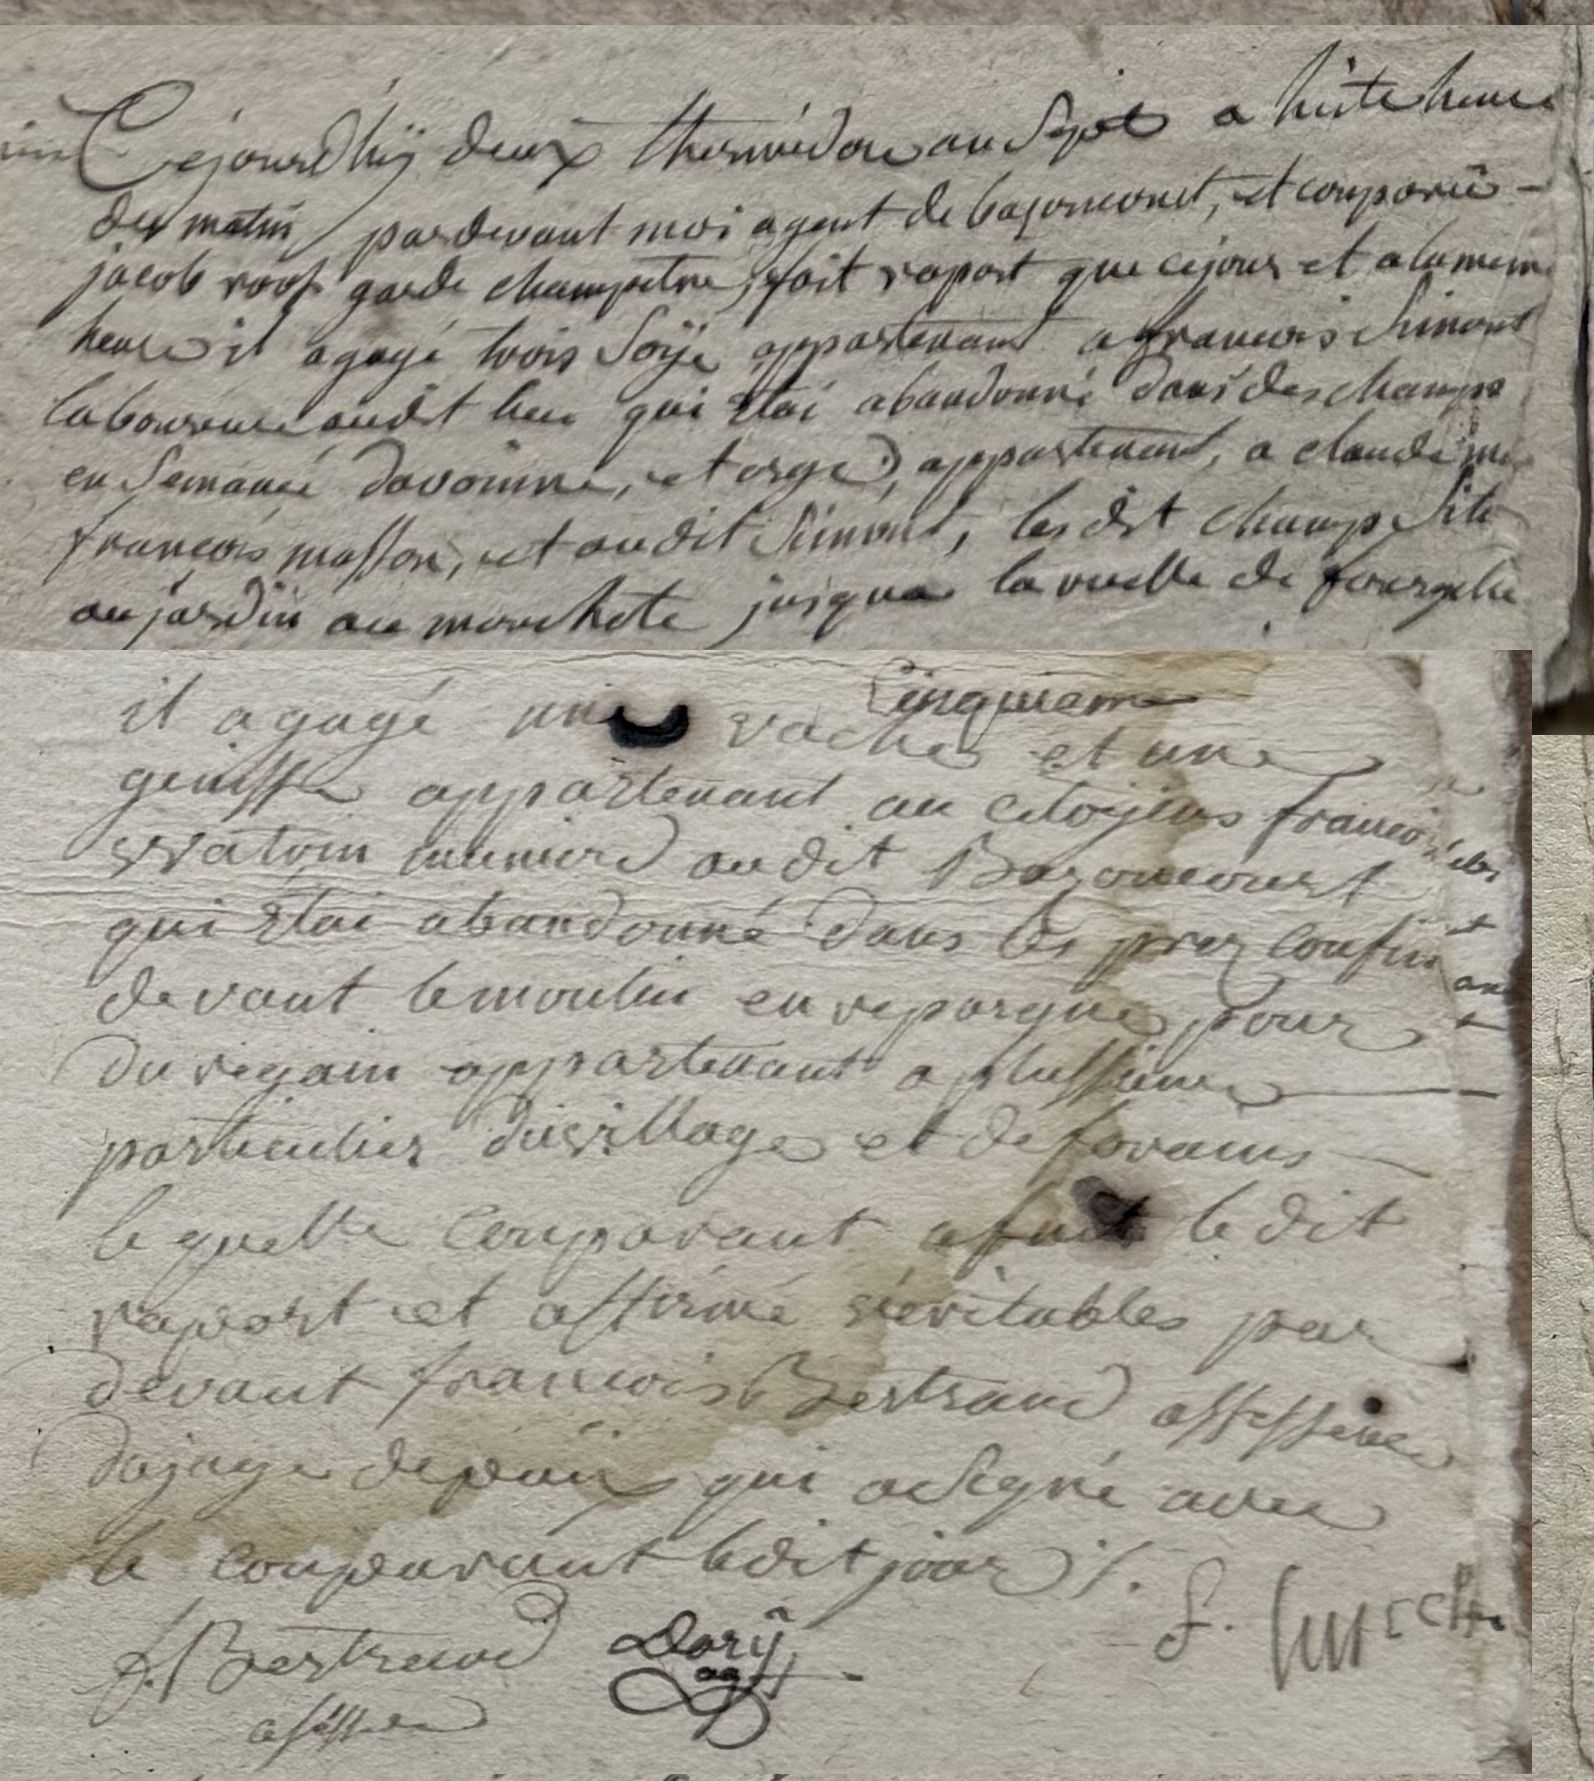 Cejourdhÿ deux thermidor an Sept a huite heure
des matin pardevant moi agent de bazoncourt, et comparü -
jacob roof garde champetre, fait raport que cejour et alameme
heure il agagé trois Soÿe appartenant a francois Simont
laboureur audit lieu qui Etai abandonné dans des champs
en Semancé davoinne, et orge, appartenant, a claude
francois masson, et audit Simont, les dit champ Site
au jardin au jusqua la ruelle de
Cinquieme
il agagé une vaches et une
genisse appartenant au citoÿens francois
vvatrin munierd audit Bazoncourt
qui Etai abandonné dans les prez confin
devant lemoulin en repargne pour
Du regain appartenant a plussieure
particulier duvillage et de forains
le quelle comparant a fait le dit
raport et affirmé sievéritables par
devant francois Bertrand assesseure
Dajuge depaix qui aSigné avec
le comparant ledit jour ./.
f. Bertrand Dorÿ
assesseur ag